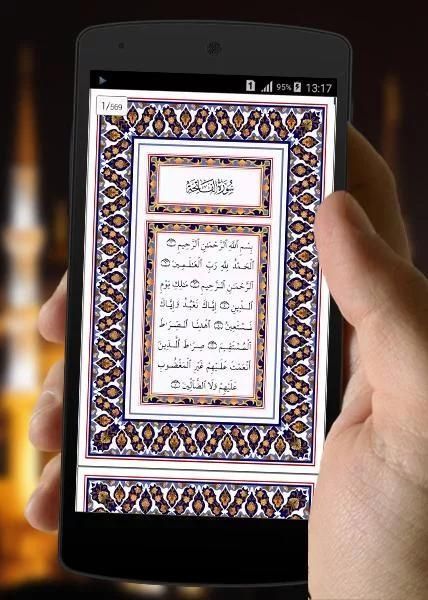 1 95% 13:17
1/569
سُورَةُ الْفَاتِحَةِ
بِسْمِ اللَّهِ الرَّحْمَٰنِ الرَّحِيمِ ۝
الْحَمْدُ لِلَّهِ رَبِّ الْعَالَمِينَ ۝
الرَّحْمَٰنِ الرَّحِيمِ ۝ مَالِكِ يَوْمِ
الدِّينِ ۝ إِيَّاكَ نَعْبُدُ وَإِيَّاكَ
نَسْتَعِينُ ۝ اهْدِنَا الصِّرَاطَ
الْمُسْتَقِيمَ ۝ صِرَاطَ الَّذِينَ
أَنْعَمْتَ عَلَيْهِمْ غَيْرِ الْمَغْضُوبِ
عَلَيْهِمْ وَلَا الضَّالِّينَ ۝